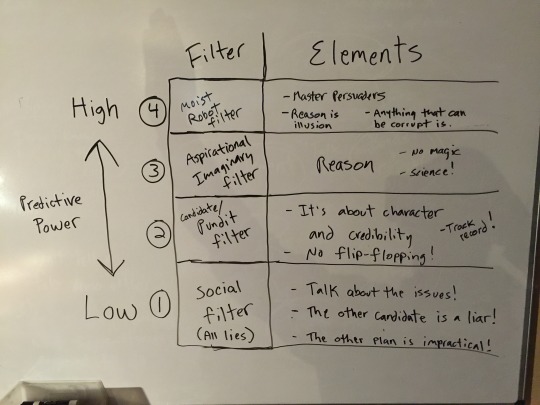 Filter
Elements
High
4
Moist
Robot
filter
- Master Persuaders
- Reason is
illusion
- Anything that can
be corrupt is.
3
Aspirational
Imaginary
filter
Reason
- No magic
- science!
Predictive
Power
2
Candidate/
Pundit
filter
- It's about character
and credibility
- Track
record!
- No flip-flopping!
Low
1
Social
filter
(All lies)
- Talk about the issues!
- The other candidate is a liar!
- The other plan is impractical!